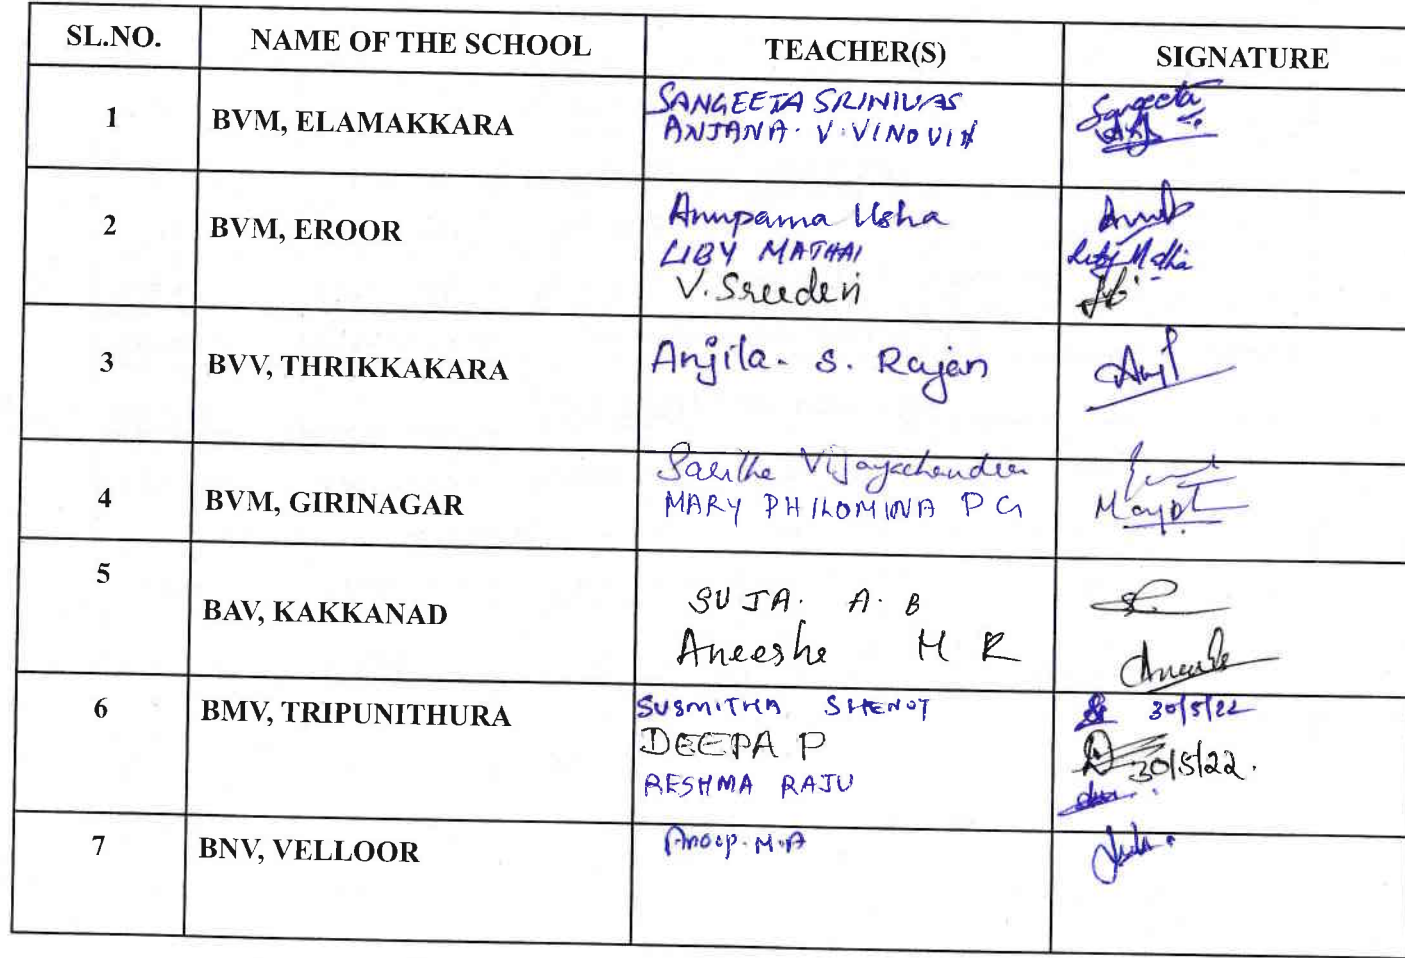 SL.NO. NAME OF THE SCHOOL TEACHER(S) SIGNATURE
1 BVM, ELAMAKKARA SANGEETA SRINIVAS Sangeeta
ANJANA. V. VINOUIN
2 BVM, EROOR Anupama Usha
LIBY MATHAI Liby Matha
V. Sreedevi
3 BVV, THRIKKAKARA Anjila. S. Rajan Anjl
4 BVM, GIRINAGAR Saritha Vijayachandran
MARY PHILOMINA P G
5 BAV, KAKKANAD SUJA. A. B
Aneesha M R Aneesha
6 BMV, TRIPUNITHURA SUSMITHA SHENOY 30/5/22
DEEPA P 30/5/22.
RESHMA RAJU
7 BNV, VELLOOR Anoop. M. A